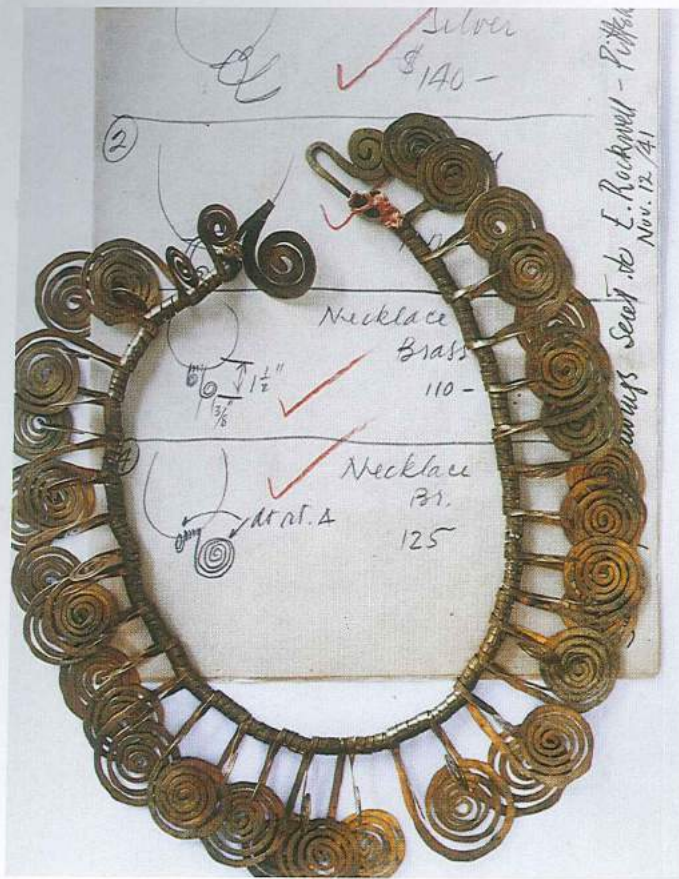 Silver
$140-
2
Necklace
Brass
110-
1½"
3/8"
4
Necklace
Br.
125
at rt. Δ
Sent to E. Rockwell -
Nov. 12/41